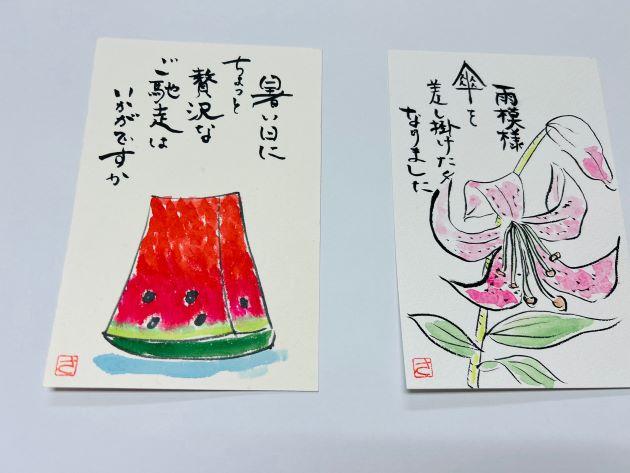 暑い日に
ちょっと
贅沢な
ご馳走は
いかがですか
雨模様
傘を
差し掛けたく
なりました